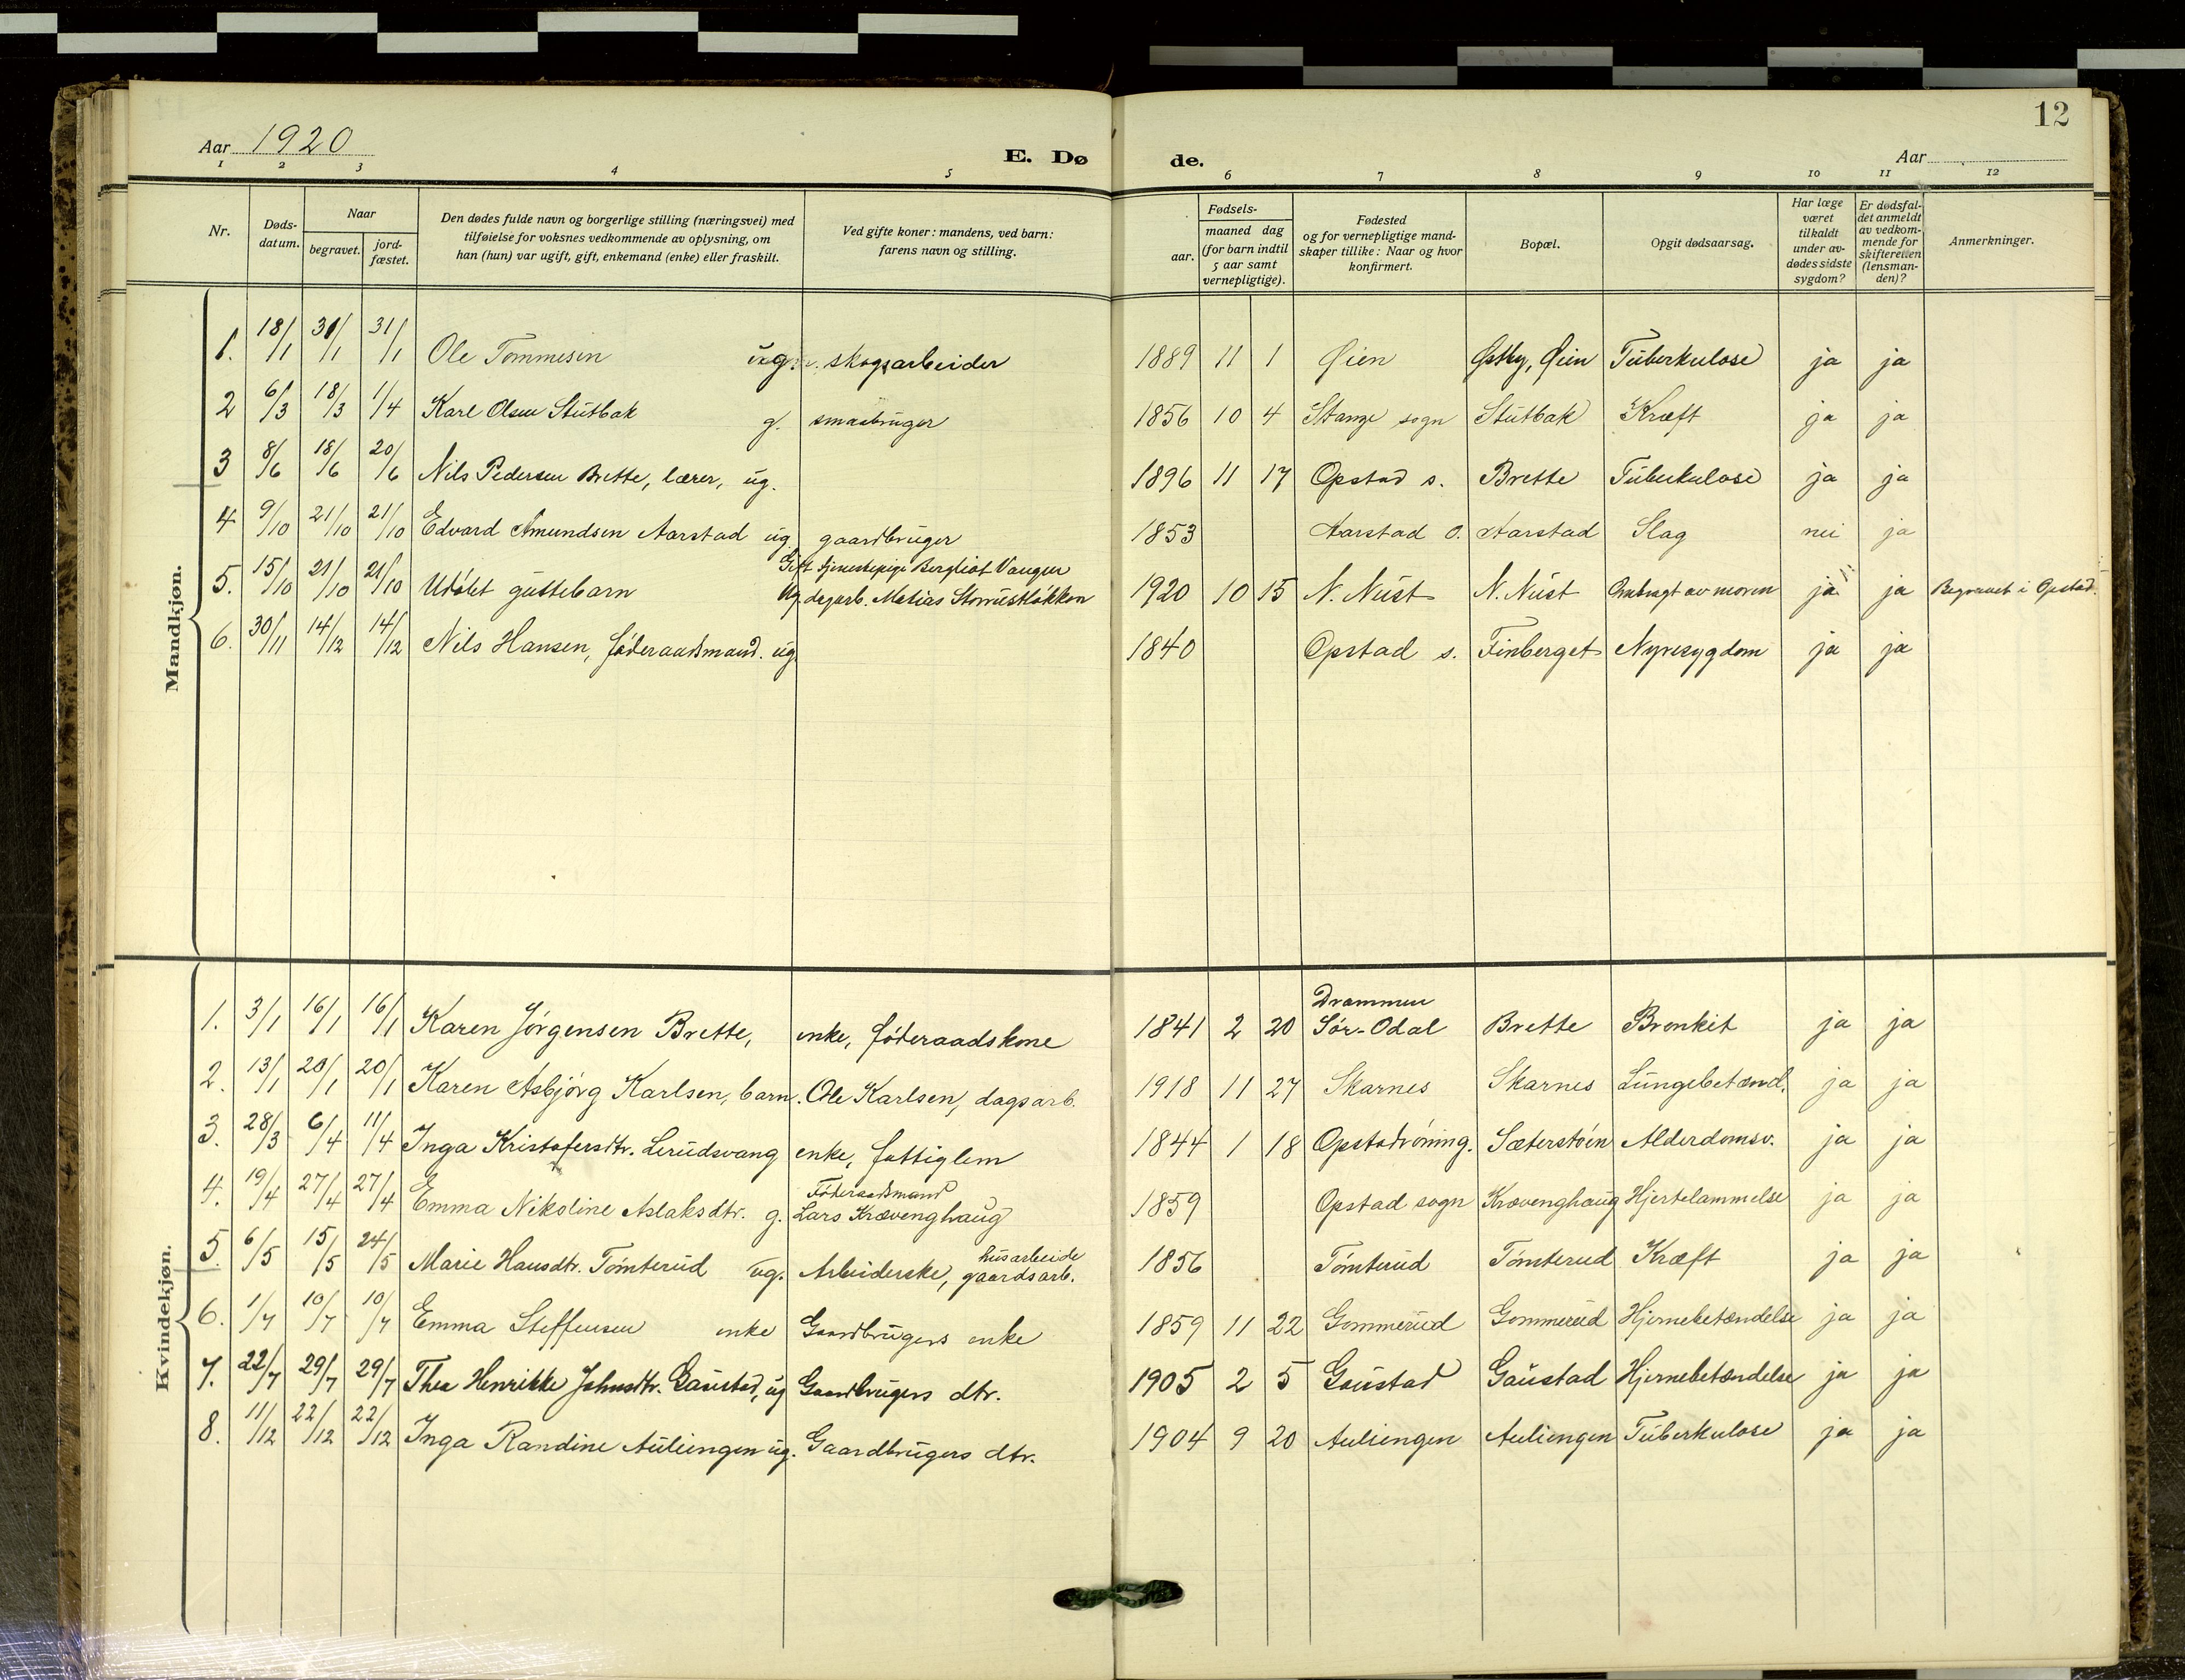 12
Aar 1920
E. Dø de.
Aar
1 2 3 4 5 6 7 8 9 10 11 12
Nr.
Døds-
datum.
Naar
begravet.
jord-
fæstet.
Den dødes fulde navn og borgerlige stilling (næringsvei) med
tilføielse for voksnes vedkommende av oplysning, om
han (hun) var ugift, gift, enkemand (enke) eller fraskilt.
Ved gifte koner: mandens, ved barn:
farens navn og stilling.
Fødsels-
aar.
maaned dag
(for barn indtil
5 aar samt
vernepligtige).
Fødested
og for vernepligtige mand-
skaper tillike: Naar og hvor
konfirmert.
Bopæl.
Opgit dødsaarsag.
Har læge
været
tilkaldt
under av-
dødes sidste
sygdom?
Er dødsfal-
det anmeldt
av vedkom-
mende for
skifteretten
(lensman-
den)?
Anmerkninger.
Mandkjøn.
1. 18/1 30/1 31/1 Ole Tommesen ug. skogsarbeider 1889 11 1 Øien Østby, Øien Tuberkulose ja ja
2 6/3 18/3 1/4 Karl Olsen Stutbak g. smaabruger 1856 10 4 Stange sogn Stutbak Kræft ja ja
3 8/6 18/6 20/6 Nils Pedersen Brette, lærer, ug. 1896 11 17 Opstad s. Brette Tuberkulose ja ja
4 9/10 21/10 21/10 Edvard Amundsen Aarstad ug gaardbruger 1853 Aarstad O. Aarstad Slag nei ja
Gift tjenestepige Bergliot Vangen
5. 15/10 21/10 21/10 Udøbt guttebarn Ug. dagarb. Matias Storrustløkken 1920 10 15 N. Nust N. Nust Ombragt av moren ja ja Begravet i Opstad.
6. 30/11 14/12 14/12 Nils Hansen, føderaadsmand. ug 1840 Opstad s. Finberget Nyresygdom ja ja
Kvindekjøn.
Drammen
1. 3/1 16/1 16/1 Karen Jørgensen Brette, enke, føderaadskone 1841 2 20 Sør-Odal Brette Bronkit ja ja
2. 13/1 20/1 20/1 Karen Asbjørg Karlsen, barn. Ole Karlsen, dagsarb. 1918 11 27 Skarnes Skarnes Lungebetænd. ja ja
3. 28/3 6/4 11/4 Inga Kristofersdtr. Lerudsvang enke, fattiglem 1844 1 18 Opstadrøning. Sæterstøen Alderdomsv. ja ja
Føderaadsmand
4. 19/4 27/4 27/4 Emma Nikoline Aslaksdtr. g. Lars Krævenghaug 1859 Opstad sogn Krævenghaug Hjertelammelse ja ja
husarbeide
5. 6/5 15/5 24/5 Marie Hansdtr. Tømterud ug. Arbeiderske, gaardsarb. 1856 Tømterud Tømterud Kræft ja ja
6. 1/7 10/7 10/7 Emma Steffensen enke Gaardbrugers enke 1859 11 22 Gommerud Gommerud Hjernebetændelse ja ja
7. 22/7 29/7 29/7 Thea Henrikke Johnsdtr. Gaustad, ug Gaardbrugers dtr. 1905 2 5 Gaustad Gaustad Hjernebetændelse ja ja
8. 11/12 22/12 22/12 Inga Randine Auliengen ug. Gaardbrugers dtr. 1904 9 20 Auliengen Auliengen Tuberkulose ja ja